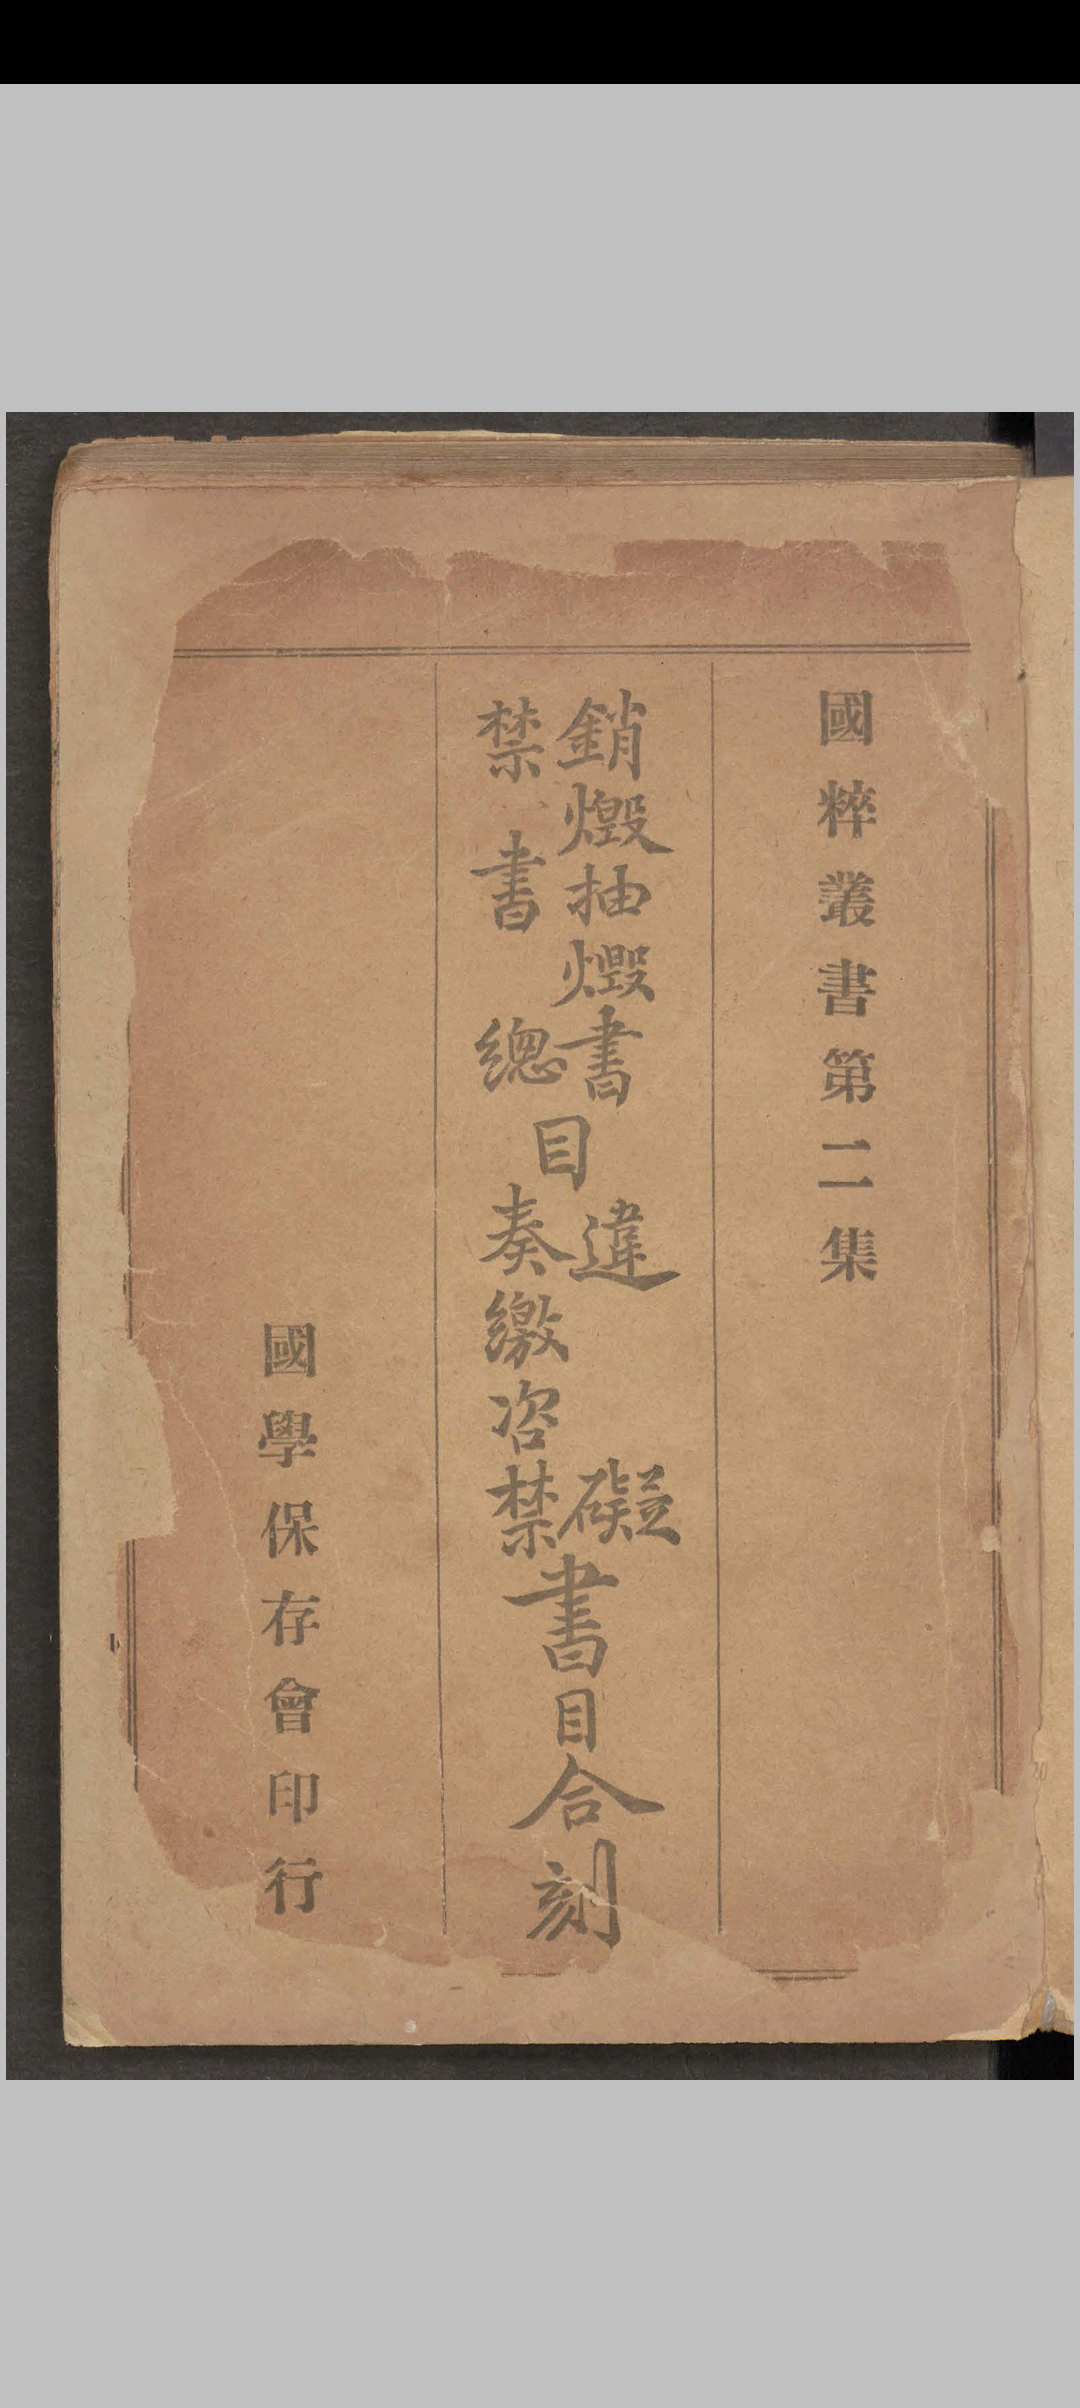 國粹叢書第二集
銷燬抽燬書
禁書總
目
違礙
奏繳咨禁
書目合刻
國學保存會印行